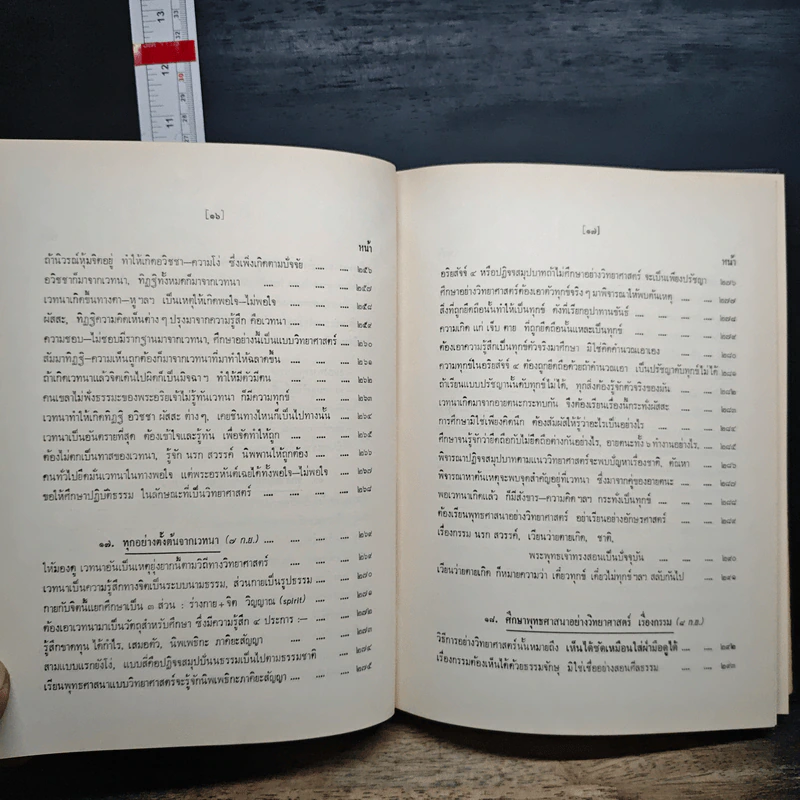 13
12
11
[๑๖]
หน้า
ถ้านิวรณ์หุ้มจิตอยู่ ทำให้เกิดอวิชชา—ความโง่ ซึ่งเพิ่งเกิดตามปัจจัย .... .... ๒๕๖
อวิชชาก็มาจากเวทนา, ทิฏฐิทั้งหมดก็มาจากเวทนา .... .... .... ๒๕๗
เวทนาเกิดขึ้นทางตา—หู ฯลฯ เป็นเหตุให้เกิดพอใจ—ไม่พอใจ .... .... ๒๕๘
ผัสสะ, ทิฏฐิความคิดเห็นต่าง ๆ ปรุงมาจากความรู้สึก คือเวทนา .... .... ๒๕๙
ความชอบ—ไม่ชอบมีรากฐานมาจากเวทนา, ศึกษาอย่างนี้เป็นแบบวิทยาศาสตร์ ๒๖๐
สัมมาทิฏฐิ—ความเห็นถูกต้องก็มาจากเวทนาที่มาทำให้ฉลาดขึ้น .... .... ๒๖๑
ถ้าเกิดเวทนาแล้วจิตเดินไปผิดก็เป็นมิจฉา ฯ ทำให้มีตัวมีตน .... .... ๒๖๒
คนเขลาไม่ฟังธรรมะของพระอริยเจ้าไม่รู้ทันเวทนา ก็มีความทุกข์ .... ....
เวทนาทำให้เกิดทิฏฐิ อวิชชา ผัสสะ ต่าง ๆ, เคยชินทางไหนก็เป็นไปทางนั้น ๒๖๔
เวทนาเป็นอันตรายที่สุด ต้องเข้าใจและรู้ทัน เพื่อจัดทำให้ถูก .... .... ๒๖๕
ต้องไม่ตกเป็นทาสของเวทนา, รู้จัก นรก สวรรค์ นิพพานให้ถูกต้อง .... ๒๖๖
คนทั่วไปยึดมั่นเวทนาในทางพอใจ แต่พระอรหันต์เฉยได้ทั้งพอใจ—ไม่พอใจ ๒๖๗
ขอให้ศึกษาปฏิบัติธรรม ในลักษณะที่เป็นวิทยาศาสตร์ .... .... .... ๒๖๘
๑๗. ทุกอย่างตั้งต้นจากเวทนา (๗ ก.ย.) .... .... .... ๒๖๙
ให้มองดู เวทนาอันเป็นเหตุยุ่งยากนี้ตามวิถีทางวิทยาศาสตร์ .... .... ๒๖๙
เวทนาเป็นความรู้สึกทางจิตเป็นระบบนามธรรม, ส่วนกายเป็นรูปธรรม .... ๒๗๐
กายกับจิตนี้แยกศึกษาเป็น ๓ ส่วน : ร่างกาย + จิต วิญญาณ (spirit) ๒๗๑
ต้องเอาเวทนามาเป็นวัตถุสำหรับศึกษา ซึ่งมีความรู้สึก ๔ ประการ :— ๒๗๒
รู้สึกขาดทุน ได้กำไร, เสมอตัว, นิพเพธิกะ ภาคิยะสัญญา .... .... ๒๗๓
สามแบบแรกยังโง่, แบบสี่คือปฏิจจสมุปปันนธรรมเป็นไปตามธรรมชาติ .... ๒๗๔
เรียนพุทธศาสนาแบบวิทยาศาสตร์จะรู้จักนิพเพธิกะภาคิยะสัญญา .... .... ๒๗๕
[๑๗]
หน้า
อริยสัจจ์ ๔ หรือปฏิจจสมุปบาทถ้าไม่ศึกษาอย่างวิทยาศาสตร์ จะเป็นเพียงปรัชญา ๒๗๖
ศึกษาอย่างวิทยาศาสตร์ต้องเอาตัวทุกข์จริง ๆ มาพิจารณาให้พบต้นเหตุ .... ๒๗๗
สิ่งที่ถูกยึดถือนั้นทำให้เป็นทุกข์ ดังที่เรียกอุปาทานขันธ์ .... .... ๒๗๘
ความเกิด แก่ เจ็บ ตาย ที่ถูกยึดถือนั้นแหละเป็นทุกข์ .... .... ๒๗๙
ต้องเอาความรู้สึกเป็นทุกข์ตัวจริงมาศึกษา มิใช่คิดคำนวณเอาเอง .... ....
ความทุกข์ในอริยสัจจ์ ๔ ต้องถูกยึดถือด้วยถ้าคำนวณเอา เป็นปรัชญาดับทุกข์ไม่ได้
ถ้าเรียนแบบปรัชญานั้นดับทุกข์ไม่ได้, ทุกสิ่งต้องรู้จักตัวจริงของมัน .... ๒๘๒
เวทนาเกิดมาจากอายตนะกระทบกัน จึงต้องเรียนเรื่องนี้กระทั่งผัสสะ ....
การศึกษามิใช่เพียงคิดนึก ต้องสัมผัสให้รู้ว่าอะไรเป็นอย่างไร .... ....
ศึกษาจนรู้จักว่ายึดถือกับไม่ยึดถือต่างกันอย่างไร, อายตนะทั้ง ๖ ทำงานอย่างไร, ๒๘๕
พิจารณาปฏิจจสมุปบาทตามแนววิทยาศาสตร์จะพบปัญหาเรื่องชาติ, ตัณหา ....
พิจารณาหาต้นเหตุจะพบจุดสำคัญอยู่ที่เวทนา ซึ่งมาจากคู่ของอายตนะ ....
พอเวทนาเกิดแล้ว ก็มีสังขาร—ความคิด ฯลฯ กระทั่งเป็นทุกข์ .... .... ๒๘๘
ต้องเรียนพุทธศาสนาอย่างวิทยาศาสตร์ อย่าเรียนอย่างอักษรศาสตร์ .... ๒๘๙
เรื่องนรก สวรรค์, เวียนว่ายตายเกิด, ชาติ,
พระพุทธเจ้าทรงสอนเป็นปัจจุบัน .... .... ๒๙๐
เวียนว่ายตายเกิด ก็หมายความว่า เดี๋ยวทุกข์ เดี๋ยวไม่ทุกข์ ฯลฯ สลับกันไป .... ๒๙๑
๑๘. ศึกษาพุทธศาสนาอย่างวิทยาศาสตร์ เรื่องกรรม (๘ ก.ย.)
วิธีการอย่างวิทยาศาสตร์นั้นหมายถึง เห็นได้ชัดเหมือนใส่ฝ่ามือดูได้ .... ๒๙๒
เรื่องกรรมต้องเห็นได้ด้วยธรรมจักษุ มิใช่เชื่ออย่างสอนศีลธรรม .... .... ๒๙๓